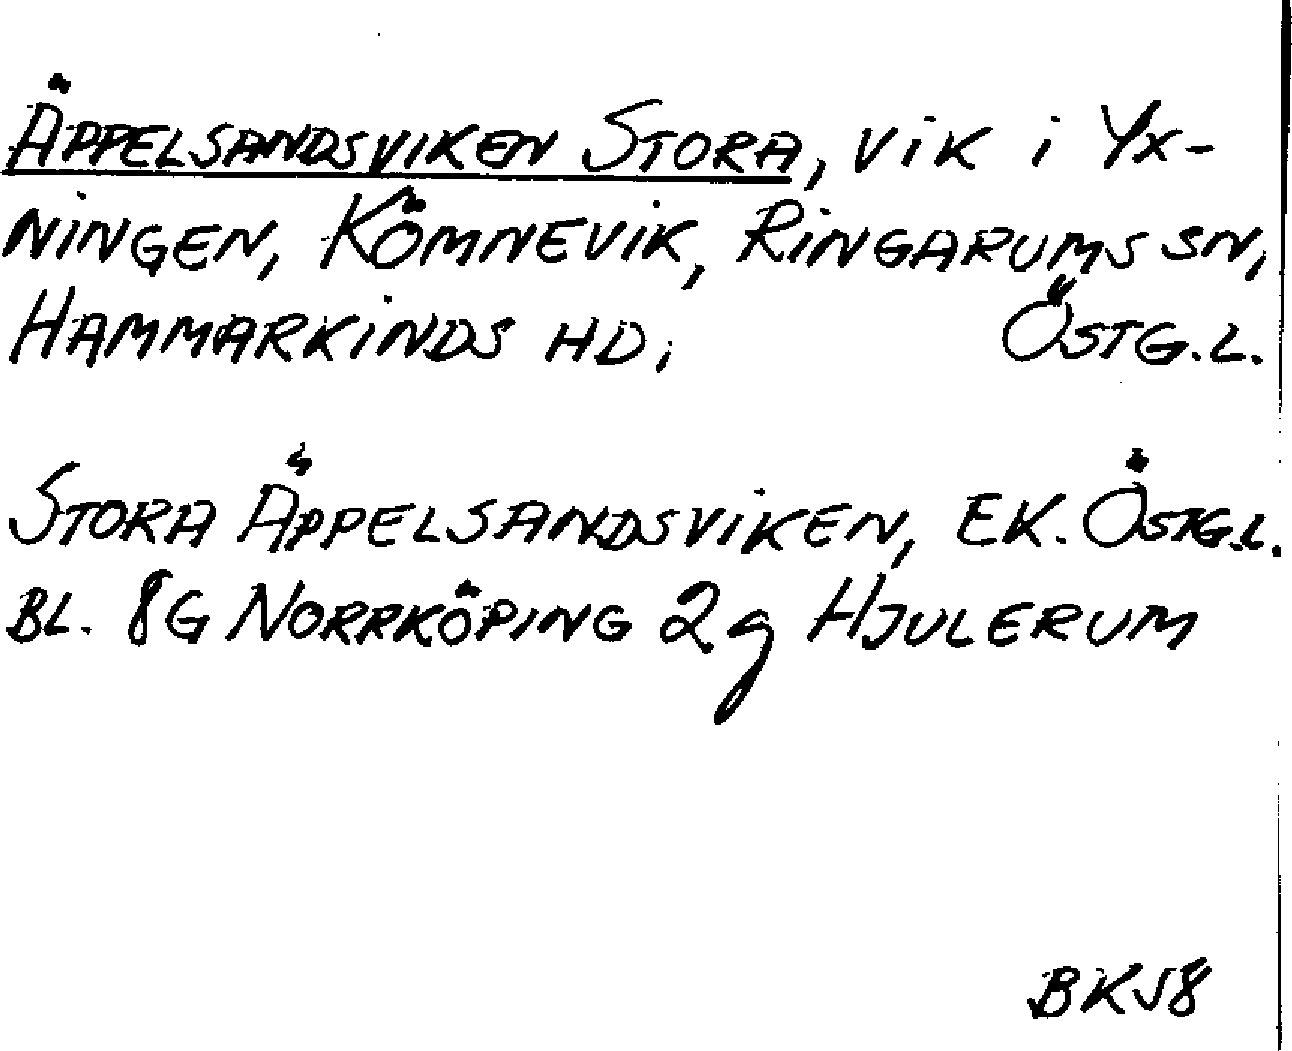 ÄPPELSANDSVIKEN STORA, VIK I YX-
NINGEN, KÖMNEVIK, RINGARUMS SN,
HAMMARKINDS HD, ÖSTG.L.
STORA ÄPPELSANDSVIKEN, EK. ÖSTG.L.
BL. 8G NORRKÖPING 2g HJULERUM